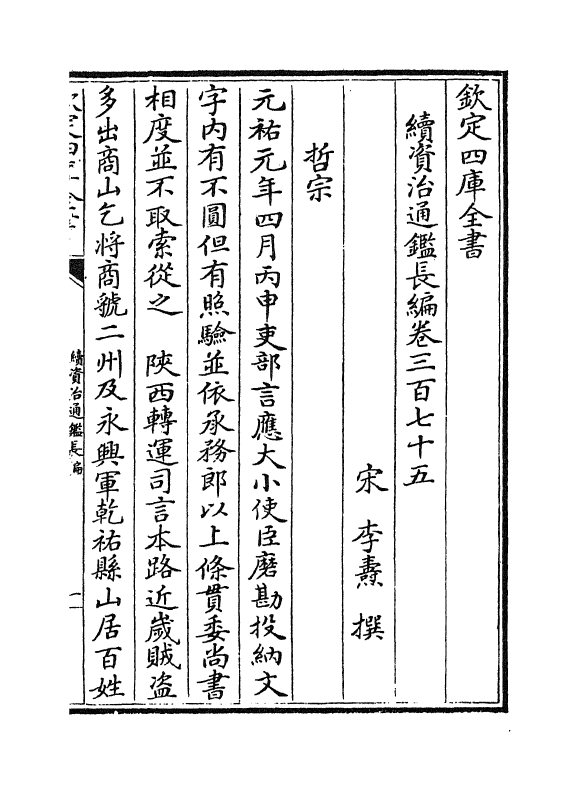 欽定四庫全書
續資治通鑑長編卷三百七十五
宋 李燾 撰
哲宗
元祐元年四月丙申吏部言應大小使臣磨勘投納文
字內有不圓但有照驗並依承務郎以上條貫委尚書
相度並不取索從之 陝西轉運司言本路近歲賊盜
多出商山乞將商虢二州及永興軍乾祐縣山居百姓
續資治通鑑長編